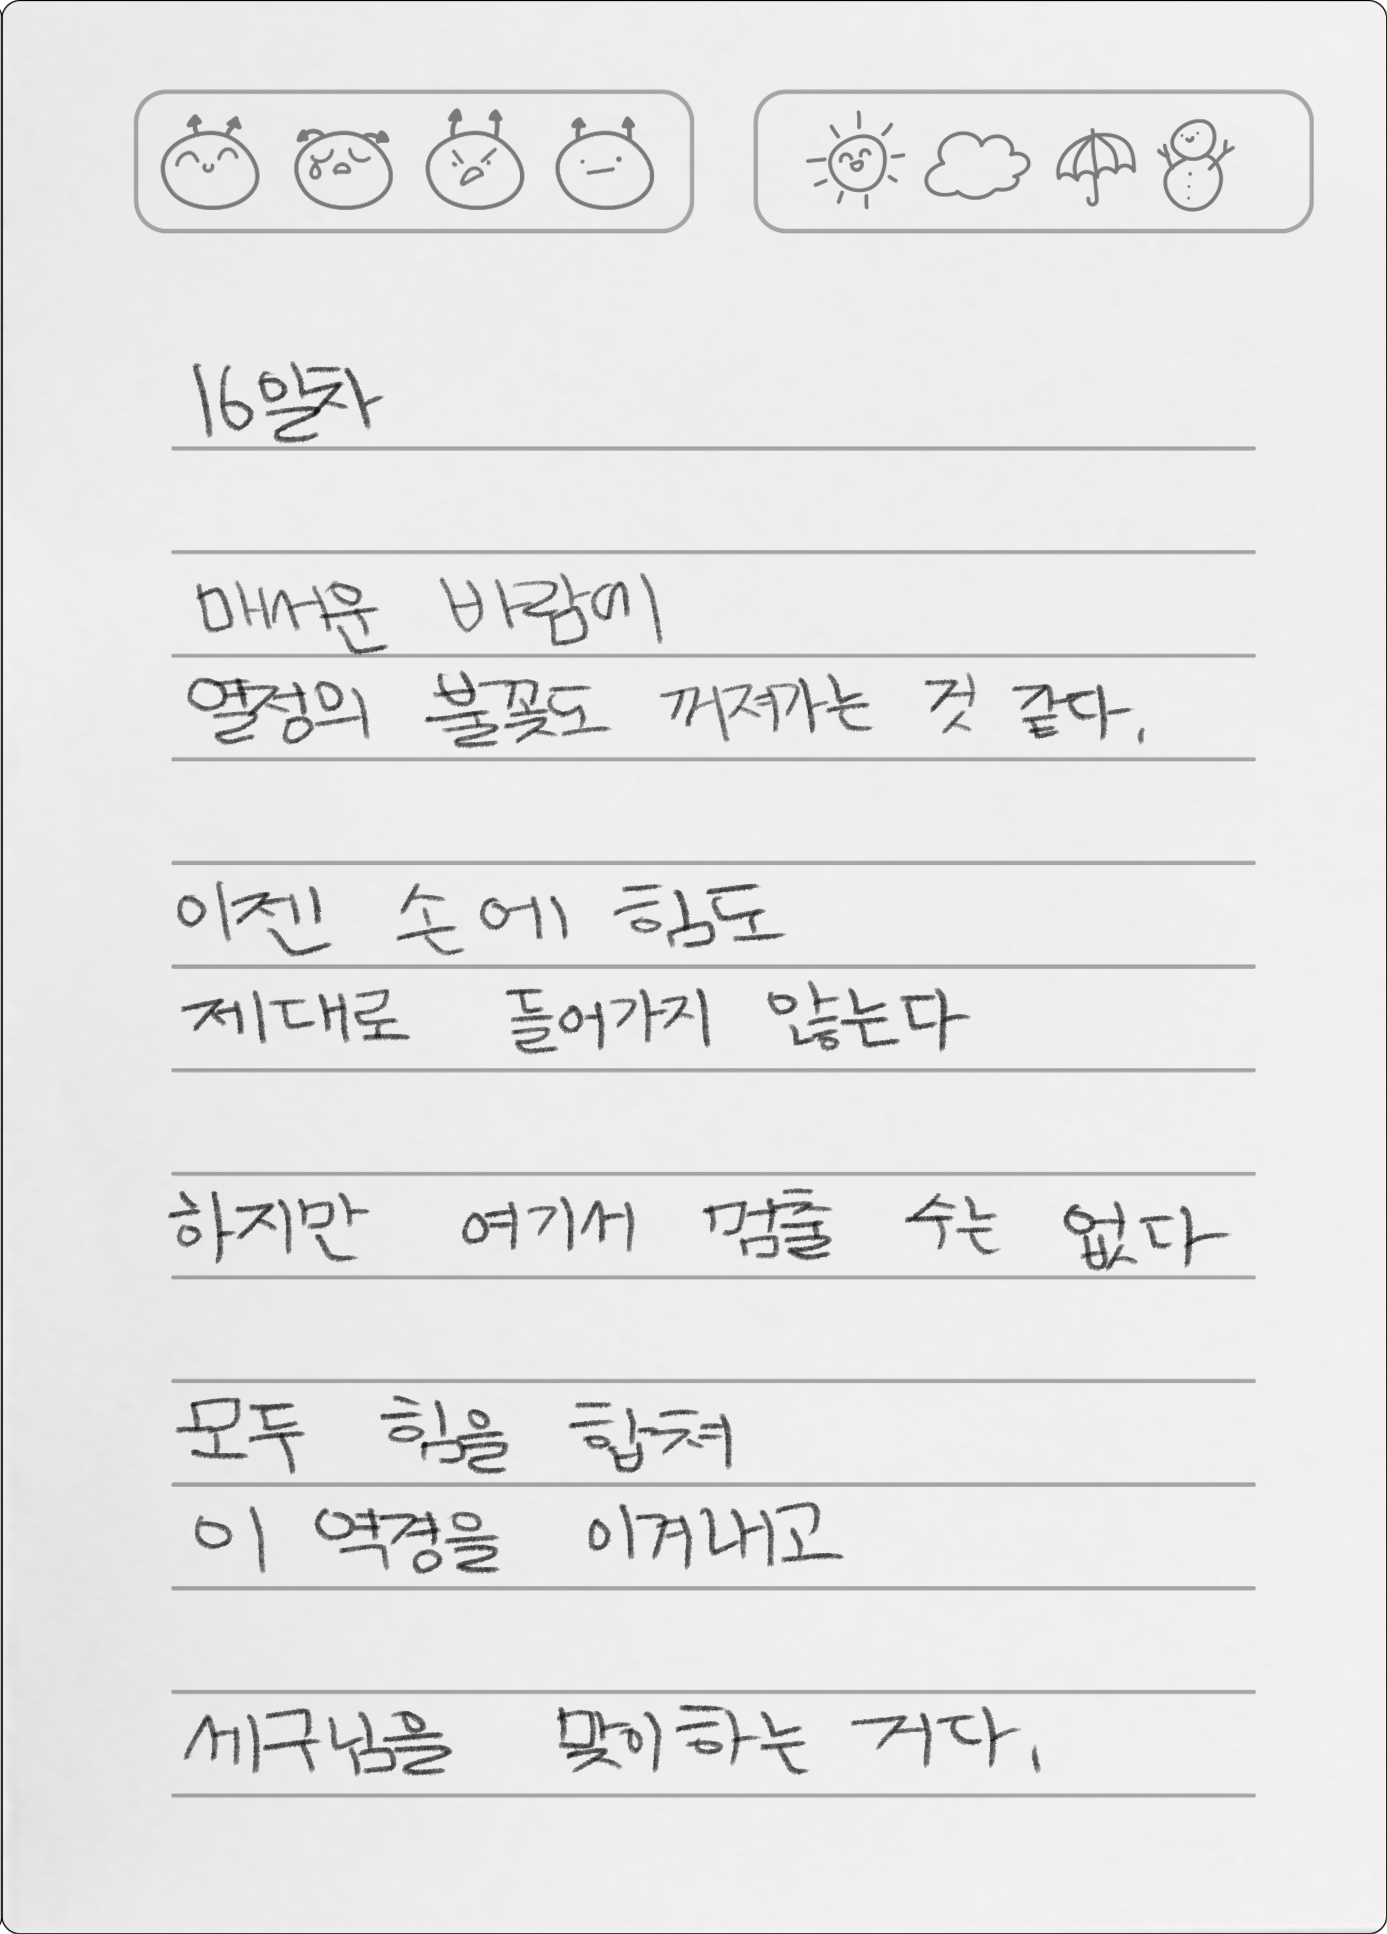 16일차
매서운 바람에
열정의 불꽃도 꺼져가는 것 같다.
이젠 손에 힘도
제대로 들어가지 않는다
하지만 여기서 멈출 수는 없다
모두 힘을 합쳐
이 역경을 이겨내고
세구님을 맞이하는 거다.